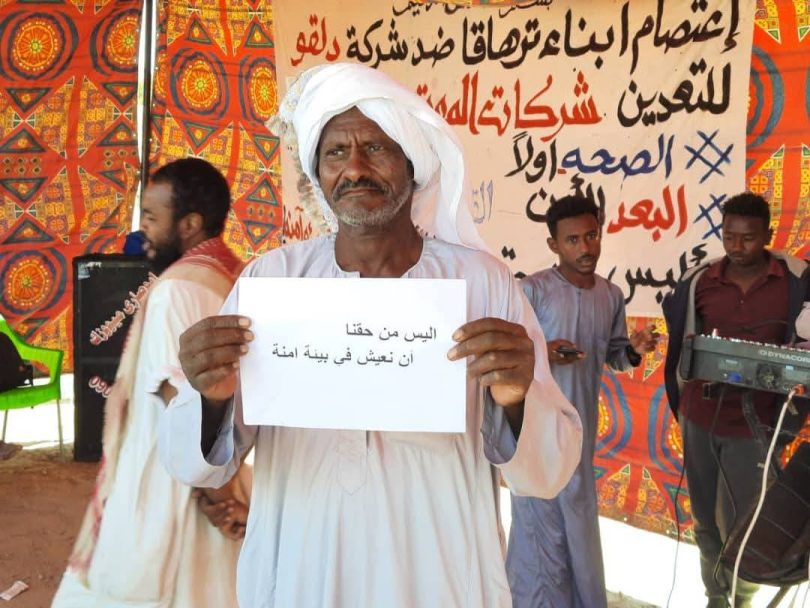 إعتصام ابناء ترهاقا ضد شركة دلقو
للتعدين شركات الموت
# الصحه اولاً
# البعد الأمن
أليس
اليس من حقنا
ان نعيش في بيئة امنة
DYNACORD